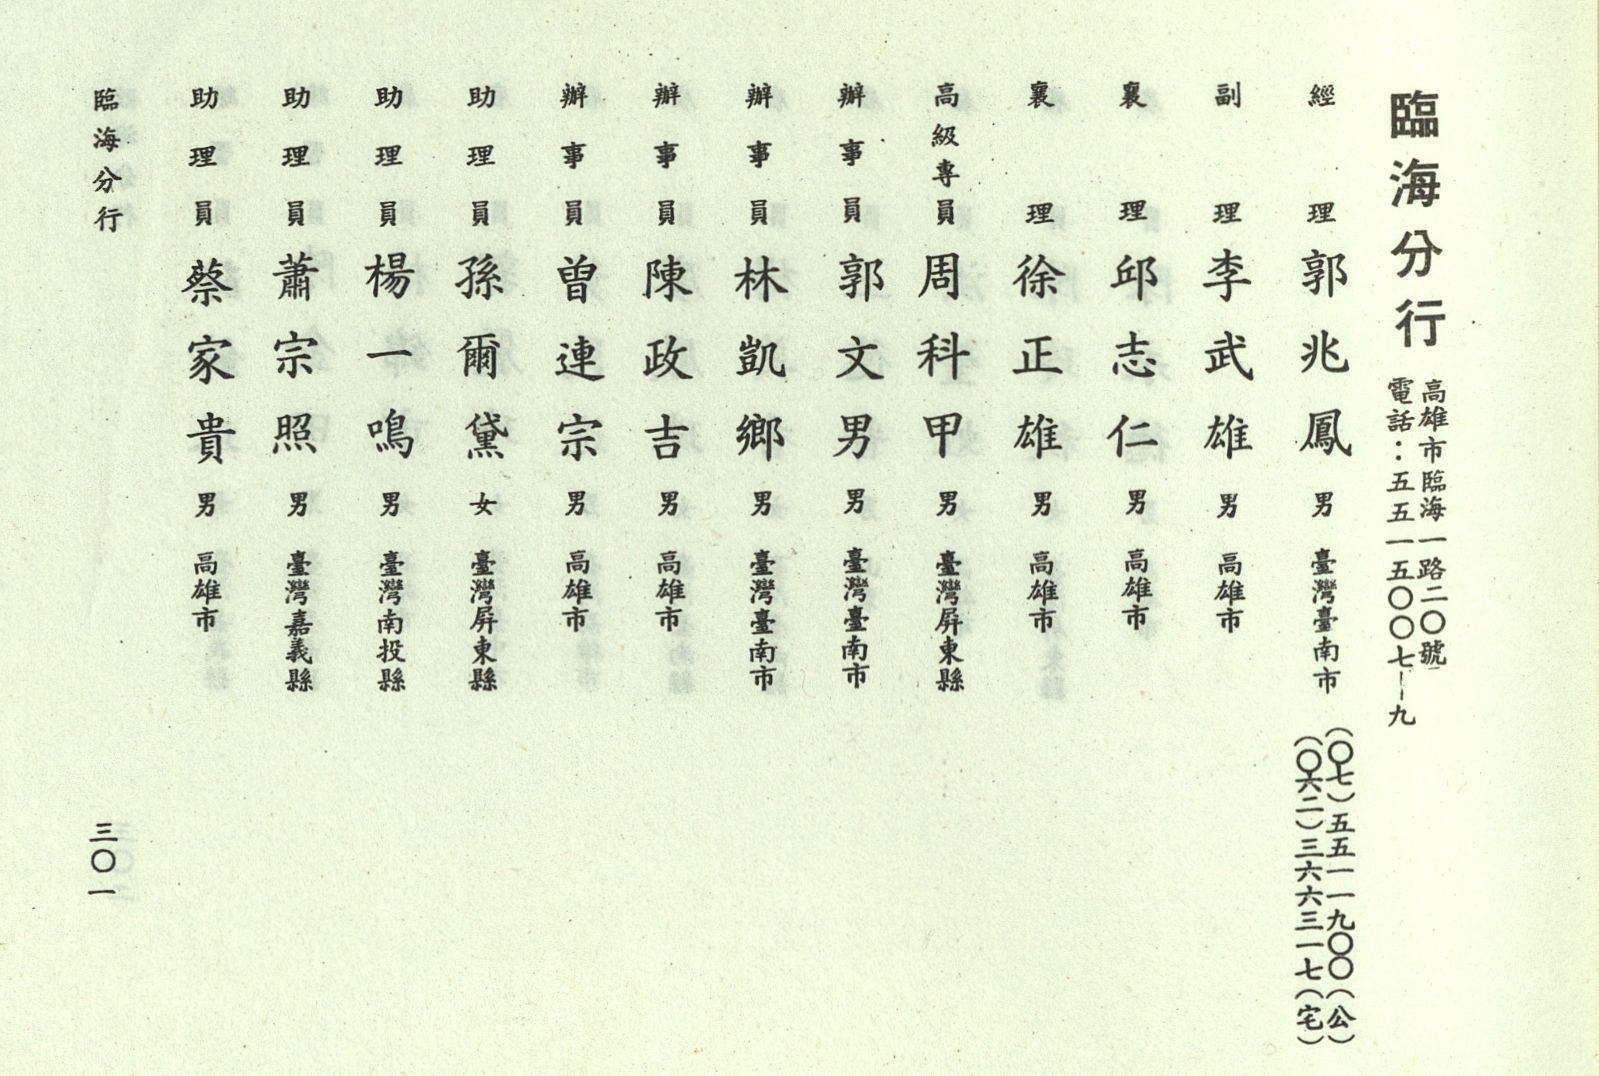 臨海分行
高雄市臨海一路二〇號
電話：五五一五〇〇七—九
經理 郭兆鳳 男 臺灣臺南市 (〇七)五五一一九〇〇(公)
(〇六二)三六六三一七(宅)
副理 李武雄 男 高雄市
襄理 邱志仁 男 高雄市
襄理 徐正雄 男 高雄市
高級專員 周科甲 男 臺灣屏東縣
辦事員 郭文男 男 臺灣臺南市
辦事員 林凱鄉 男 臺灣臺南市
辦事員 陳政吉 男 高雄市
辦事員 曾連宗 男 高雄市
助理員 孫爾黛 女 臺灣屏東縣
助理員 楊一鳴 男 臺灣南投縣
助理員 蕭宗照 男 臺灣嘉義縣
助理員 蔡家貴 男 高雄市
臨海分行
三〇一